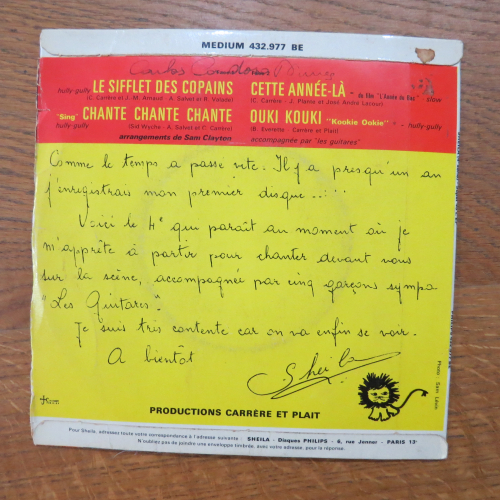 MEDIUM 432.977 BE
Carlos
hully-gully LE SIFFLET DES COPAINS
(C. Carrère et J.-M. Arnaud - A. Salvet et R. Valade)
"Sing" CHANTE CHANTE CHANTE
hully-gully (Sid Wyche - A. Salvet et C. Carrère)
CETTE ANNÉE-LÀ "du film "L'Année du Bac" - slow
(C. Carrère - J. Plante et José André Lacour)
OUKI KOUKI "Kookie Ookie" - hully-gully
(B. Everette - Carrère et Plait)
arrangements de Sam Clayton accompagnée par "les guitares"
Comme le temps a passé vite. Il y a presqu'un an
j'enregistrais mon premier disque.....
Voici le 4e qui paraît au moment où je
m'apprête à partir pour chanter devant vous
sur la scène, accompagnée par cinq garçons sympa
"Les Guitares".
Je suis très contente car on va enfin se voir.
A bientôt
Sheila
PRODUCTIONS CARRÈRE ET PLAIT
Photo : Sam Lévin
Pour Sheila, adressez toute votre correspondance à l'adresse suivante : SHEILA - Disques PHILIPS - 6, rue Jenner - PARIS 13e
N'oubliez pas de joindre une enveloppe timbrée, avec votre adresse, pour la réponse.